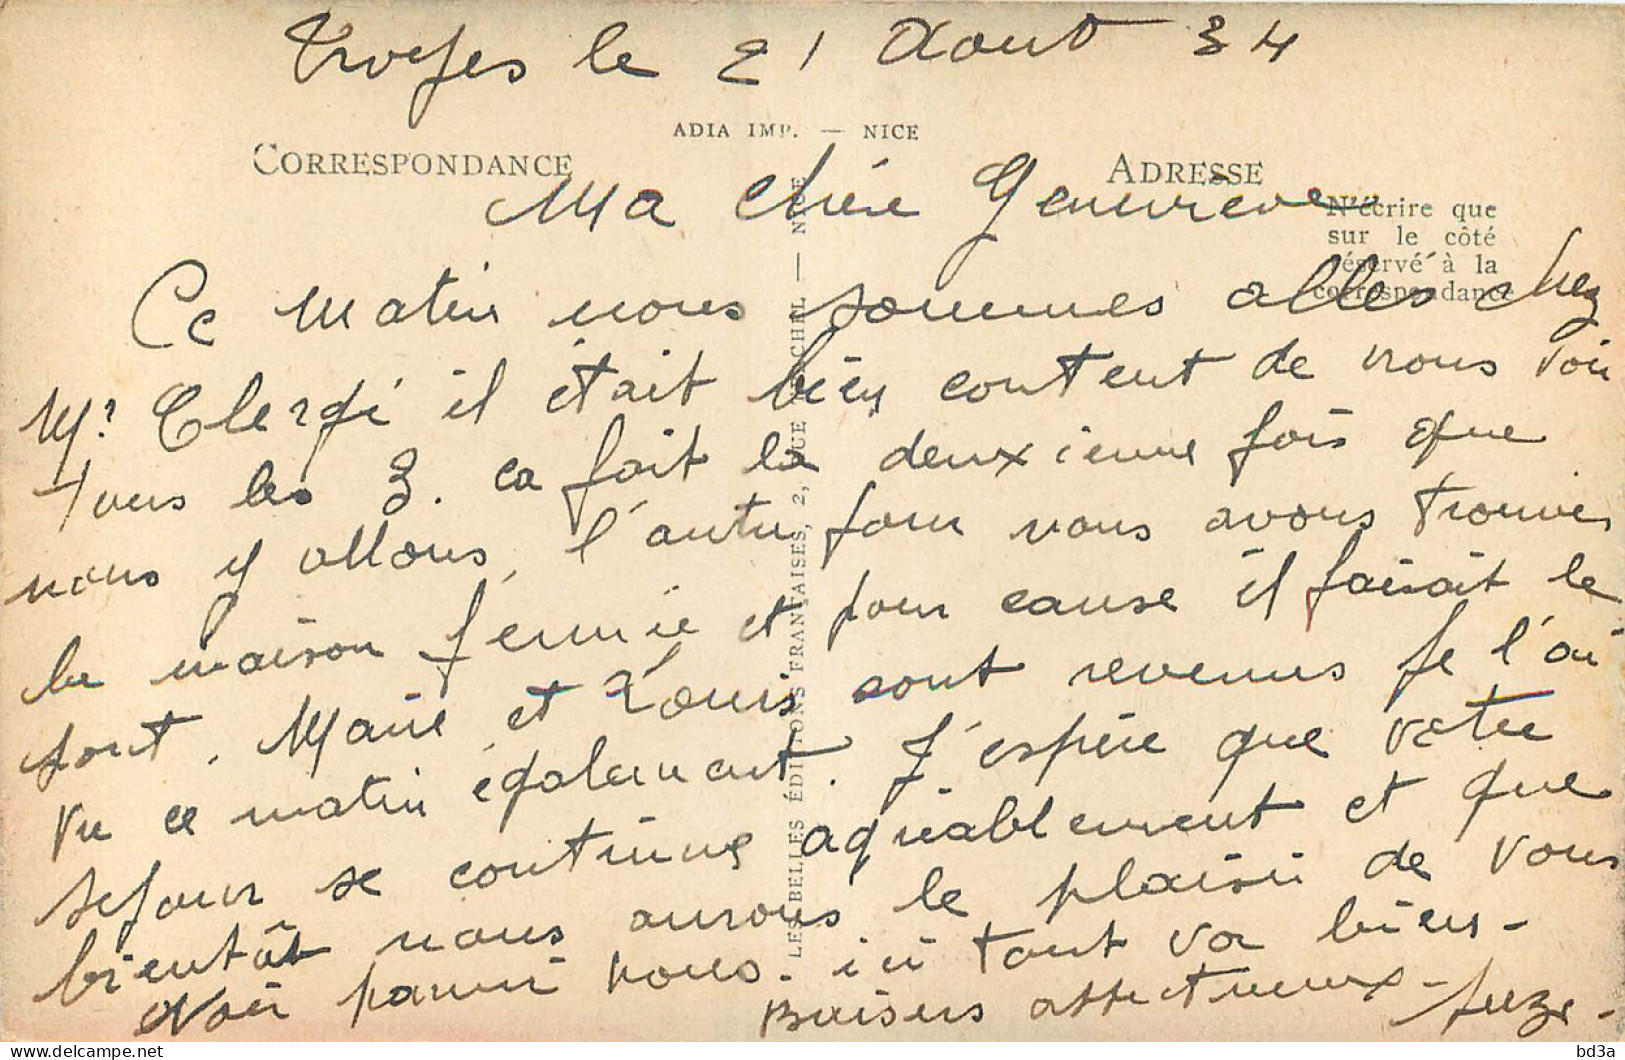 Troyes le 21 Aout 34
ADIA IMP. — NICE
CORRESPONDANCE
ADRESSE
N'écrire que
sur le côté
réservé à la
correspondance
Ma chère Geneviève
Ce matin nous sommes allés chez
Mr Clergé il était bien content de nous voir
tous les 3. ca fait la deuxième fois que
nous y allons, l'autre jour nous avons trouvé
la maison fermée et pour cause il faisait le
pont. Marie et Louis sont revenus je l'ai
vu ce matin également. J'espère que votre
séjour se continue agréablement et que
bientôt nous aurons le plaisir de vous
voir parmi nous. ici tout va bien -
Baisers affectueux -
LES BELLES ÉDITIONS FRANÇAISES, 2, NICE
bd3a